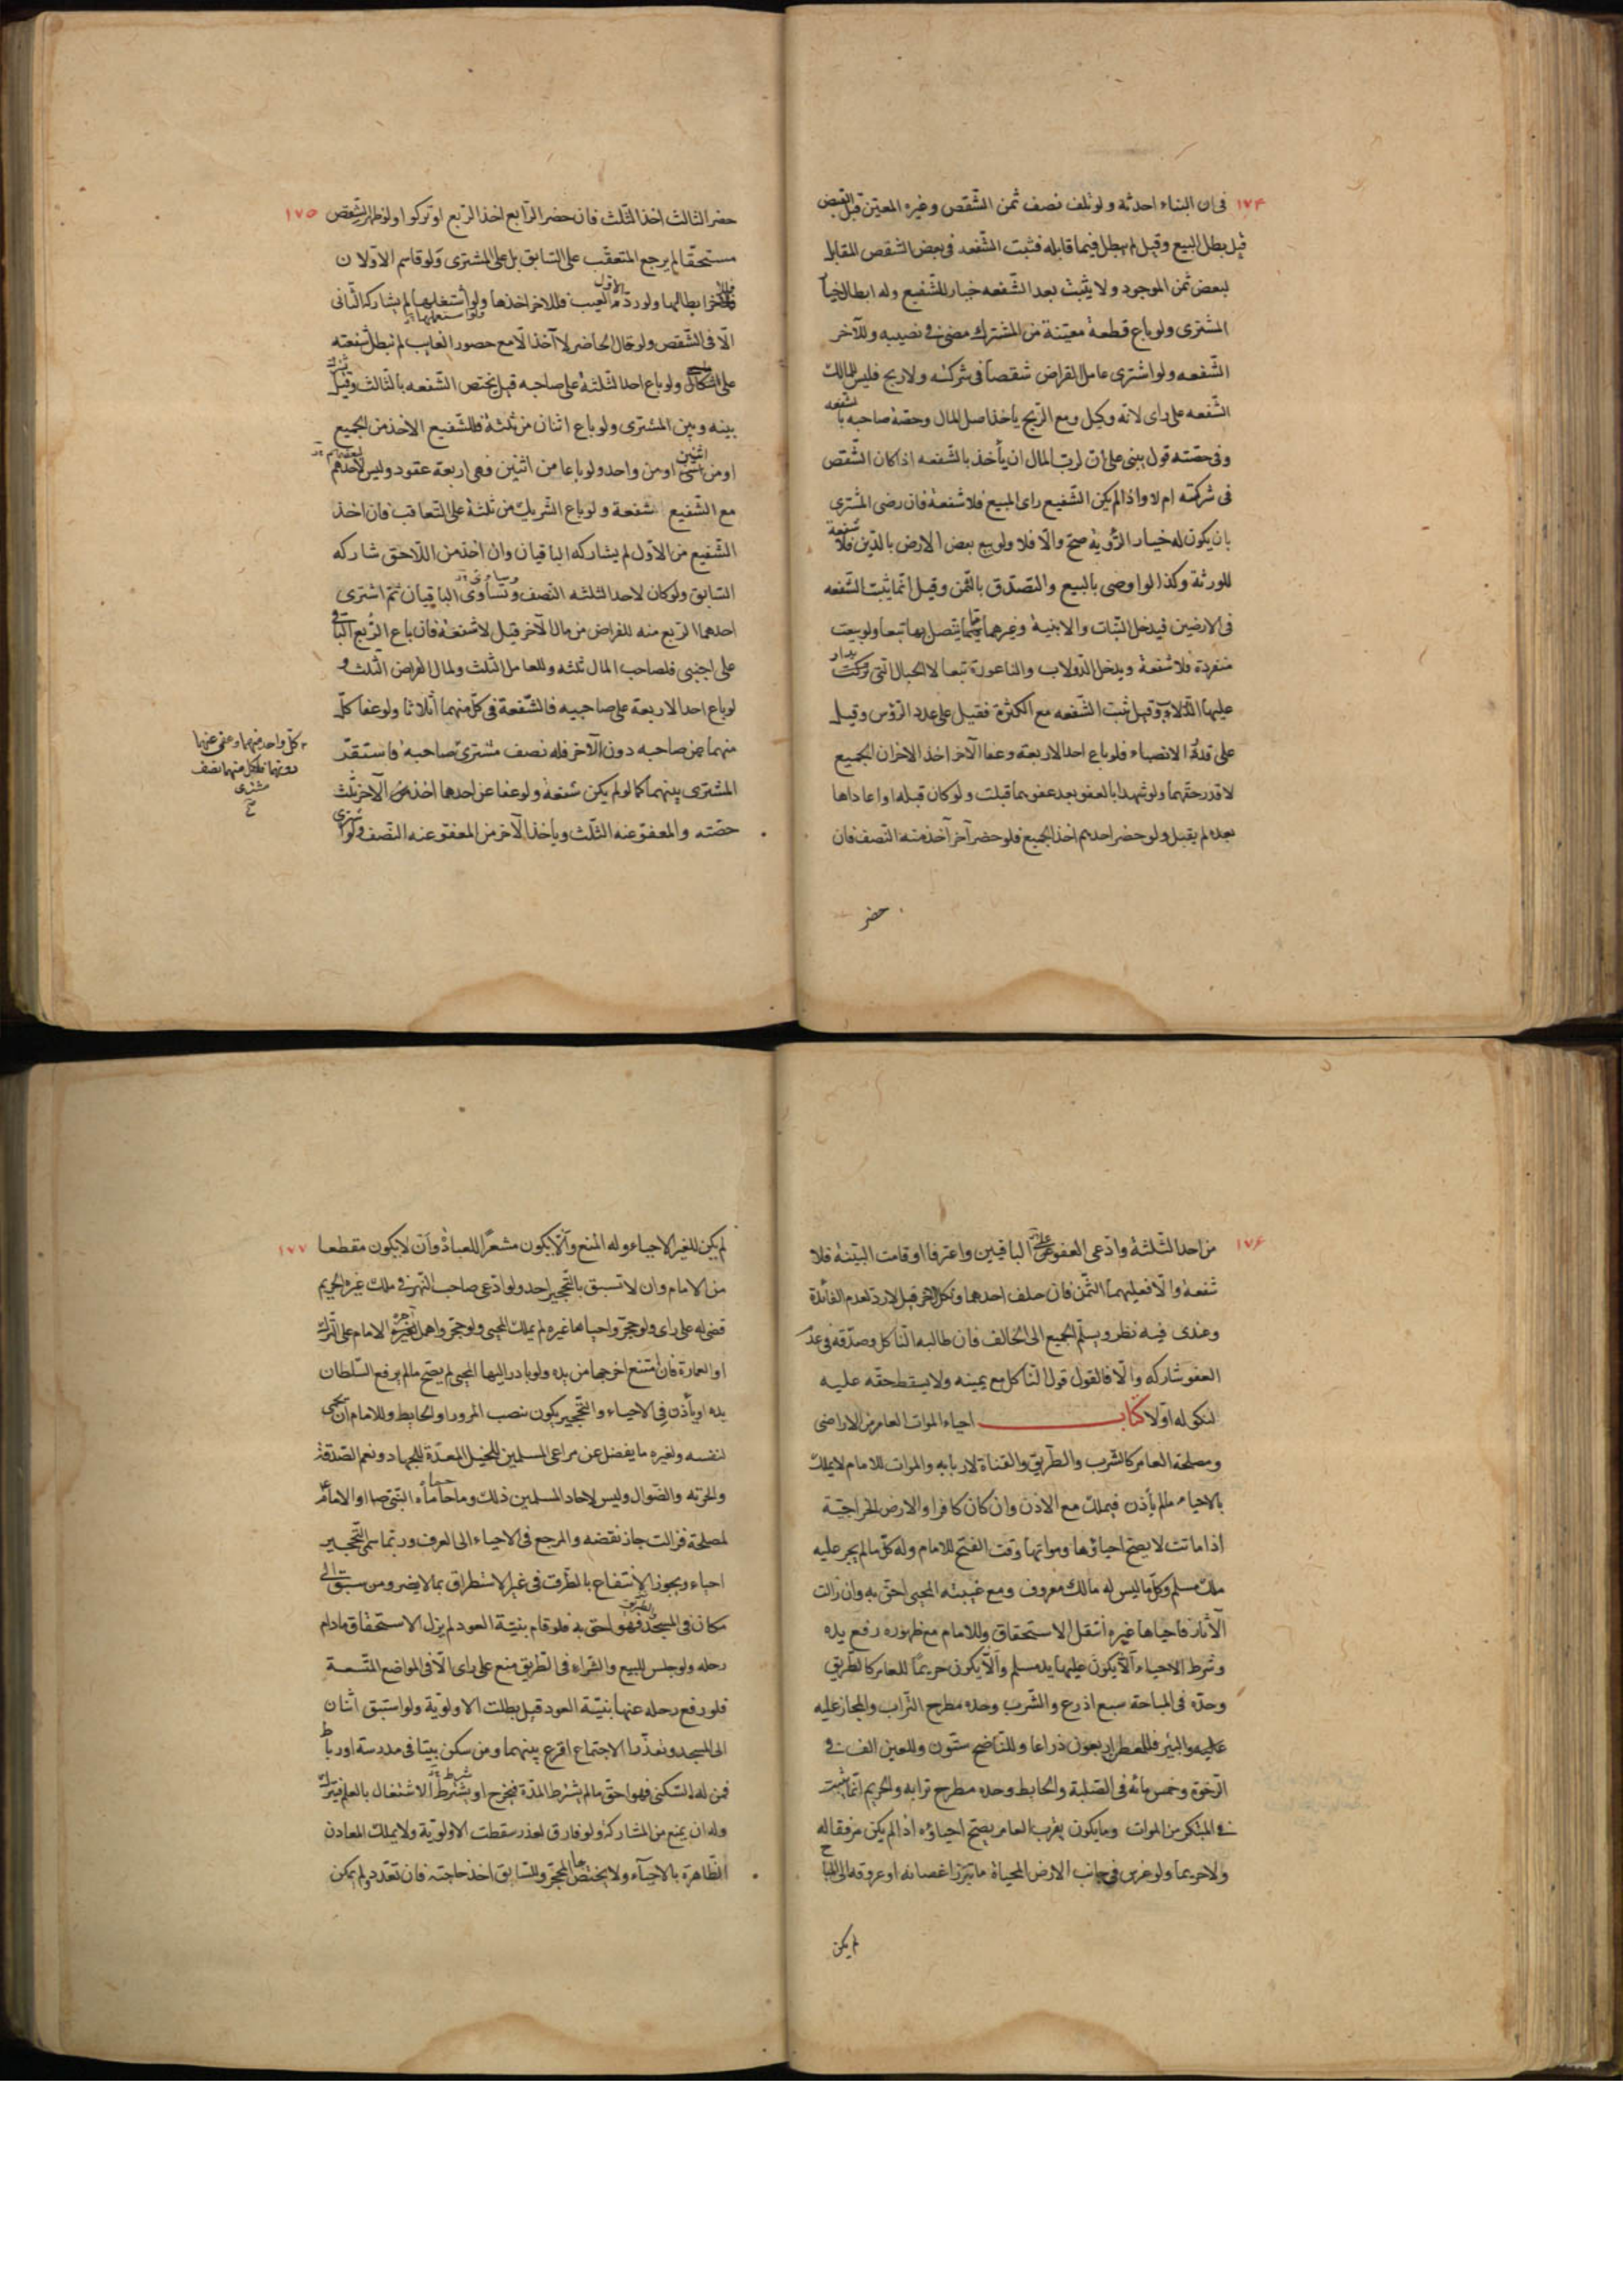 ١٧۴
فى ان البناء احدثه ولو تلف نصف ثمن الشّقص وغيره المعيّن قبل القبض
قيل بطل البيع وقيل لم يبطل فيما قابله فثبت الشّفعه فى بعض الشقص المقابل
لبعض ثمن الموجود ولا يثبت بعد الشّفعه خيار للشّفيع وله ابطال خيار
المشترى ولو باع قطعة معيّنة من المشترك مضى فى نصيبه وللآخر
الشّفعه ولو اشترى عامل القراض شقصاً فى شركته ولا ربح فليس للمالك
الشّفعه على راى لانّه وكيل ومع الرّبح ياخذ اصل المال وحصّة صاحبه بالشفعه
وفى حصّته قول يبنى على انّ لربّ المال ان يأخذ بالشّفعه اذا كان الشّقص
فى شركته ام لا واذا لم يكن الشّفيع راى المبيع فلا شفعة فان رضى المشترى
بان يكون له خيار الرّؤية صحّ والّا فلا ولو بيع بعض الارض بالدّين فلا شفعة
للورثة وكذا لو اوصى بالبيع والتصدّق بالثّمن وقيل انّما يثبت الشّفعه
فى الارضين فيدخل النّبات والابنية وغيرهما ممّا يتّصل بها تبعا ولو بيعت
منفردة فلا شفعة ويدخل الدّولاب والناعورة تبعا لا الحبال الّتى تركت
عليها الدّلاء وقيل ثبت الشّفعه مع الكثرة فقيل على عدد الرّؤس وقيل
على قدر الانصباء فلو باع احد الاربعة وعفا الآخر اخذ الاخران الجميع
لا قدر حقّهما ولو شهدا بالعفو بعد عفوهما قبلت ولو كان قبله او اعاداها
بعده لم يقبل ولو حضر احدهم اخذ الجميع فلو حضر آخر آخذ منه النّصف فان
حضر
١٧٥
حضر الثالث اخذ الثّلث فان حضر الرّابع اخذ الرّبع او تركوا ولو ظهر الشّقص
مستحقّا لم يرجع المتعقّب على السّابق بل على المشترى ولو قاسم الاوّلان
فللآخر ابطالها ولو ردّه الاوّل بالعيب فللاخر اخذها ولو استغلّها لم يشاركه الثّانى
الّا فى الشّقص ولو قال الحاضر لا آخذ الّا مع حضور الغايب لم تبطل شفعته
على اشكال ولو باع احد الثّلثة على صاحبه قيل يختص الشّفعه بالثّالث وقيل
بينه وبين المشترى ولو باع اثنان من ثلثة فللشّفيع الاخذ من الجميع
او من اثنين او من واحد ولو باعا من اثنين فهى اربعة عقود وليس لاحدهم
مع الشّفيع شفعة ولو باع الشّريك من ثلثة على التّعاقب فان اخذ
الشّفيع من الاوّل لم يشاركه الباقيان وان اخذ من اللّاحق شاركه
السّابق ولو كان لاحد الثلثه النّصف وتساوى الباقيان ثم اشترى
احدهما الرّبع منه للقراض من مال الآخر قيل لا شفعة فان باع الرّبع الباقى
على اجنبى فلصاحب المال ثلثه وللعامل الثّلث ولمال القراض الثّلث و
لو باع احد الاربعة على صاحبيه فالشّفعة فى كلّ منهما أثلاثا ولو عفا كلّ
منهما عن صاحبه دون الآخر فله نصف مشترى صاحبه فاستقرّ
المشترى بينهما كما لو لم يكن شفعة ولو عفا عن احدها اخذ من الآخر ثلث
حصّته والمعفوّ عنه الثلّث وياخذ الآخر من المعفوّ عنه النّصف ولو اشترى
كلّ واحد منهما وعفى عنها
دونهما فلكلّ منهما نصف
مشترى
١٧۶
من احد الثّلثة وادّعى العفو على الباقيين واعترفا او قامت البيّنة فلا
شفعة والّا فعليهما الثّمن فان حلف احدهما ونكل الآخر قيل لا ردّ لعدم الفائدة
وعندى فيه نظر ويسلّم الجميع الى الحالف فان طالبه النّاكل وصدّقه فى عدم
العفو شاركه والّا فالقول قول النّاكل مع يمينه ولا يسقط حقّه عليه
لنكوله اوّلا كتاب احياء الموات العامر من الاراضى
ومصلحة العامر كالشّرب والطّريق والقناة لاربابه والموات للامام لا يملك
بالاحياء مالم يأذن فيملك مع الاذن وان كان كافرا والارض الخراجيّة
اذا ماتت لا يصحّ احياؤها ومواتها وقت الفتح للامام وله كلّ مالم يجر عليه
ملك مسلم وكلّ ما ليس له مالك معروف ومع غيبته المحيى احقّ به وان زالت
الآثار فاحياها غيره انتقل الاستحقاق وللامام مع ظهوره رفع يده
وشرط الاحياء الّا يكون عليها يد مسلم والّا يكون حريما للعامر كالطّريق
وحدّه فى المباحة سبع اذرع والشّرب وحدّه مطرح التّراب والمجاز عليه
عليه والبئر فللمعطن اربعون ذراعا وللنّاضح ستّون وللعين الف فى
الرّخوة وخمس مائة فى الصّلبة والحايط وحده مطرح ترابه والحريم انّما يثبت
فى المبتكر من الموات وما يكون بقرب العامر يصحّ احياؤه اذا لم يكن مرفقا له
ولا حريما ولو غرس فى جانب الارض المحياة ما تبرز اغصانه او عروقه الى المباح
لم يكن
١٧٧
لم يكن للغير الاحياء وله المنع والّا يكون مشعرًا للعبادة وان لا يكون مقطعا
من الامام وان لا تسبق بالتّحجير احد ولو ادّعى صاحب النّهر فى ملك غيره الحريم
قضى له على راى ولو حجّر واحياها غيره لم يملك المحيى ولو حجّر واهمل اجبره الامام على التّرك
او العمارة فان امتنع اخرجها من يده ولو بادر اليها المحيى لم يصحّ مالم يرفع السّلطان
يده او يأذن فى الاحياء والتّحجير يكون بنصب المروز او الحايط وللامام ان يحمى
لنفسه ولغيره ما يفضل عن مراعى المسلمين للخيل المعدّة للجهاد ونعم الصّدقة
والجزية والضّوال وليس لاحاد المسلمين ذلك وما حماه النّبى ص او الامام
لمصلحة فزالت جاز نقضه والمرجع فى الاحياء الى العرف وربّما سمى التّحجير
احياء ويجوز الانتفاع بالطّرق فى غير الاستطراق بما لا يضر ومن سبق الى
مكان فى المسجد فهو احق به فلو قام بنيّة العود لم يزل الاستحقاق مادام
رحله ولو جلس للبيع والشّراء فى الطّريق منع على راى الّا فى المواضع المتّسعة
فلو رفع رحله عنها بنيّة العود قيل بطلت الاولويّة ولو استبق اثنان
الى المسجد وتعذّر الاجتماع اقرع بينهما ومن سكن بيتا فى مدرسة او رباط
فمن له السّكنى فهو احقّ مالم يشترط المدّة فيخرج او يشترط الاشتغال بالعلم فيترك
وله ان يمنع من المشاركة ولو فارق لعذر سقطت الاولويّة ولا يملك المعادن
الظّاهرة بالاحيآء ولا يختصّ بها المحجّر وللسّابق اخذ حاجته فان تعدّد ولم يمكن